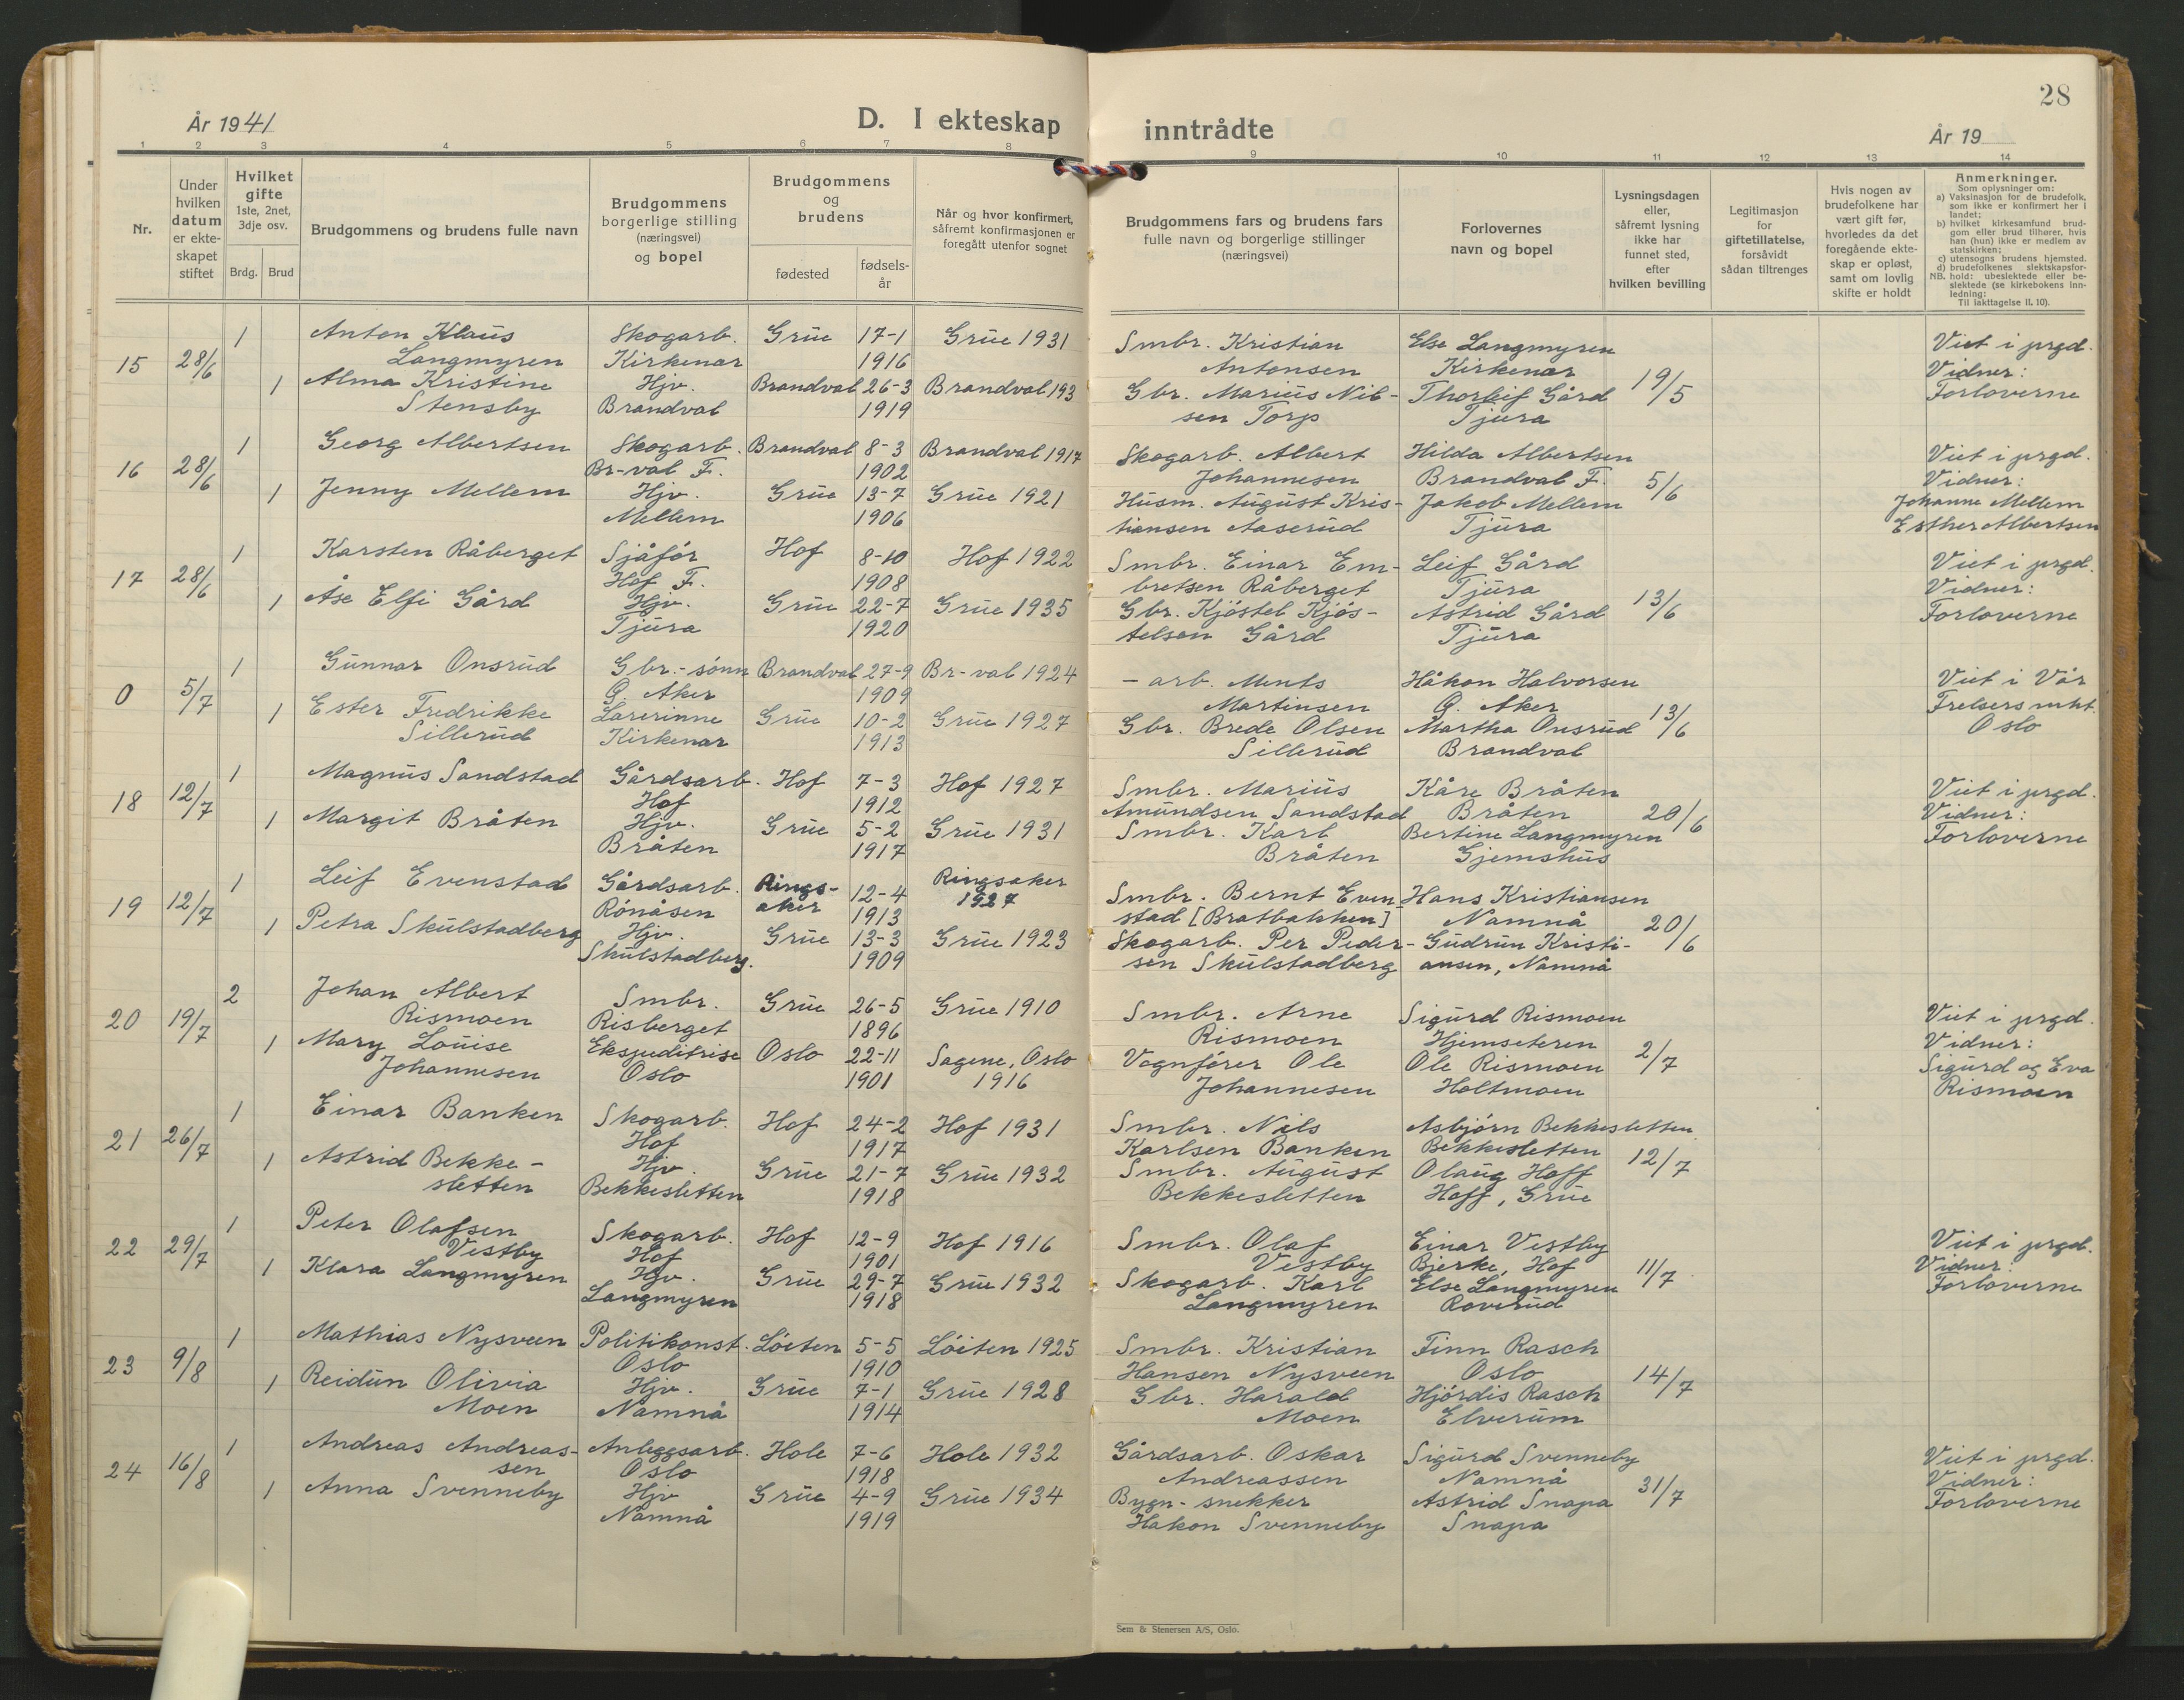 28
År 1941
D. I ekteskap inntrådte
År 19
1 2 3 4 5 6 7 8 9 10 11 12 13 14
Nr.
Under hvilken datum er ekte-skapet stiftet
Hvilket gifte 1ste, 2net, 3dje osv.
Brdg. Brud
Brudgommens og brudens fulle navn
Brudgommens borgerlige stilling (næringsvei) og bopel
Brudgommens og brudens
fødested
fødsels-år
Når og hvor konfirmert, såfremt konfirmasjonen er foregått utenfor sognet
Brudgommens fars og brudens fars fulle navn og borgerlige stillinger (næringsvei)
Forlovernes navn og bopel
Lysningsdagen eller, såfremt lysning ikke har funnet sted, efter hvilken bevilling
Legitimasjon for giftetillatelse, forsåvidt sådan tiltrenges
Hvis nogen av brudefolkene har vært gift før, hvorledes da det foregående ekte-skap er opløst, samt om lovlig skifte er holdt
Anmerkninger.
Som oplysninger om:
a) Vaksinasjon for de brudefolk, som ikke er konfirmert her i landet;
b) hvilket kirkesamfund brud-gom eller brud tilhører, hvis han (hun) ikke er medlem av statskirken;
c) utensogns brudens hjemsted.
d) brudefolkenes slektskapsfor-hold: ubeslektede eller be-slektede (se kirkebokens inn-ledning:
NB. Til iakttagelse II. 10).
15 28/6 1 Anton Klaus Skogarb. Grue 17-1 Grue 1931 Smbr. Kristian Else Langmyren Viet i prgd.
Langmyren Kirkenær 1916 Antonsen Kirkenær 19/5 Vidner:
1 Alma Kristine Hjv. Brandval 26-3 Brandval 193 Gbr. Marius Nil- Thorleif Gård Forloverne
Stensby Brandval 1919 sen Torp Tjura
16 28/6 1 Georg Albertsen Skogarb. Brandval 8-3 Brandval 1917 Skogarb. Albert Hilda Albertsen Viet i prgd.
Br-val F. 1902 Johannesen Brandval F. 5/6 Vidner:
1 Jenny Mellem Hjv. Grue 13-7 Grue 1921 Husm. August Kris- Jakob Mellem Johanne Mellem
Mellem 1906 tiansen Aaserud Tjura Esther Albertsen
17 28/6 1 Karsten Råberget Sjåfør Hof 8-10 Hof 1922 Smbr. Einar Em- Leif Gård Viet i prgd.
Hof F. 1908 bretsen Råberget Tjura Vidner:
1 Åse Elfi Gård Hjv. Grue 22-7 Grue 1935 Gbr. Kjøstel Kjøs- Astrid Gård 13/6 Forloverne
Tjura 1920 telsen Gård Tjura
0 5/7 1 Gunnar Onsrud Gbr.-sønn Brandval 27-9 Br-val 1924 - arb. Ments Håkon Halvorsen Viet i Vår
G. Aker 1909 Martinsen G. Aker Frelsers mht.
1 Ester Fredrikke Lærerinne Grue 10-2 Grue 1927 Gbr. Brede Olsen Martha Onsrud 13/6 Oslo
Sillerud Kirkenær 1913 Sillerud Brandval
18 12/7 1 Magnus Sandstad Gårdsarb. Hof 7-3 Hof 1927 Smbr. Marius Kåre Bråten Viet i prgd.
Hof 1912 Amundsen Sandstad Bråten 20/6 Vidner:
1 Margit Bråten Hjv. Grue 5-2 Grue 1931 Smbr. Karl Bertine Langmyren Forloverne
Bråten 1917 Bråten Gjemshus
19 12/7 1 Leif Evenstad Gårdsarb. Rings- 12-4 Ringsaker Smbr. Bernt Even- Hans Kristiansen
Rönåsen aker 1913 1927 stad [Bratbakken] Namnå 20/6
1 Petra Skulstadberg Hjv. Grue 13-3 Grue 1923 Skogarb. Per Peder- Gudrun Kristi-
Skulstadberg. 1909 sen Skulstadberg ansen, Namnå
20 19/7 2 Johan Albert Smbr. Grue 26-5 Grue 1910 Smbr. Arne Sigurd Rismoen Viet i prgd.
Rismoen Risberget 1896 Rismoen Hjemseteren Vidner:
1 Mary Louise Ekspeditrise Oslo 22-11 Sagene, Oslo Vognfører Ole Ole Rismoen 2/7 Sigurd og Eva
Johannesen Oslo 1901 1916 Johannesen Holtmoen Rismoen
21 26/7 1 Einar Banken Skogarb. Hof 24-2 Hof 1931 Smbr. Nils Asbjørn Bekkesletten
Hof 1917 Karlsen Banken Bekkesletten 12/7
1 Astrid Bekke- Hjv. Grue 21-7 Grue 1932 Smbr. August Olaug Hoff
sletten Bekkesletten 1918 Bekkesletten Hoff, Grue
22 29/7 1 Peter Olafsen Skogarb. Hof 12-9 Hof 1916 Smbr. Olaf Einar Vestby Viet i prgd.
Vestby Hof 1901 Vestby Bjerke, Hof 11/7 Vidner:
1 Klara Langmyren Hjv. Grue 29-7 Grue 1932 Skogarb. Karl Else Langmyren Forloverne
Langmyren 1918 Langmyren Roverud
23 9/8 1 Mathias Nysveen Politikonst. Löiten 5-5 Löiten 1925 Smbr. Kristian Finn Rasch
Oslo 1910 Hansen Nysveen Oslo 14/7
1 Reidun Olivia Hjv. Grue 7-1 Grue 1928 Gbr. Harald Hjördis Rasch
Moen Namnå 1914 Moen Elverum
24 16/8 1 Andreas Andreas- Anleggsarb. Hole 7-6 Hole 1932 Gårdsarb. Oskar Sigurd Svenneby Viet i prgd.
sen Oslo 1918 Andreassen Namnå Vidner:
1 Anna Svenneby Hjv Grue 4-9 Grue 1934 Bygn-snekker Astrid Snapa 31/7 Forloverne
Namnå 1919 Hakon Svenneby Snapa
Sem & Stenersen A/S, Oslo.